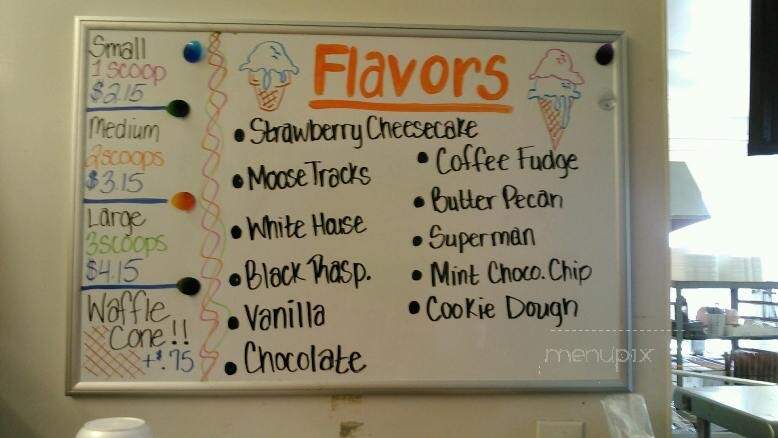 Small
1 scoop
$2.15
Medium
2scoops
$3.15
Large
3scoops
$4.15
Waffle
Cone!!
+$.75
Flavors
• Strawberry Cheesecake
• Moose Tracks
• White House
• Black Rasp.
• Vanilla
• Chocolate
• Coffee Fudge
• Butter Pecan
• Superman
• Mint Choco. Chip
• Cookie Dough
menupix